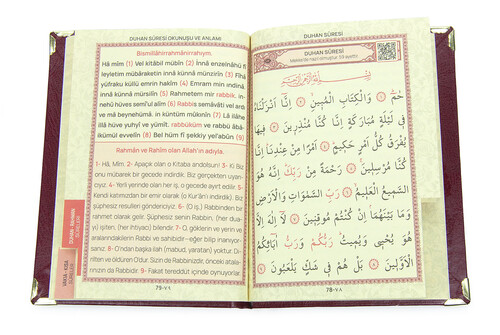 DUHAN SÛRESİ OKUNUŞU VE ANLAMI
Bismillâhirrahmânirrahîym.
Hâ mîm (1) Vel kitâbil mübîn (2) İnnâ enzelnâhü fî
leyletim mübâraketin innâ künnâ münzirîn (3) Fîhâ
yüfraku küllü emrin hakîm (4) Emram min ındinâ.
innâ künnâ mürsilîn (5) Rahmetem mir rabbik. in-
nehû hüves semî'ul alîm (6) Rabbis semâvâti vel ard
ve mâ beynehümâ. in küntüm mûkınîn (7) Lâ ilâhe
illâ hüve yuhyî ve yümît. rabbüküm ve rabbü âbâ-
ikümül evvelîn (8) Bel hüm fî şekkiy yel'abûn (9)
Rahmân ve Rahîm olan Allah'ın adıyla.
1- Hâ, Mîm. 2- Apaçık olan o Kitaba andolsun! 3- Ki Biz
onu mübarek bir gecede indirdik. Biz gerçekten uyarı-
cıyız. 4- Yeli yerinde olan her iş, o gecede ayırt edilir. 5-
Kendi katımızdan bir emir olarak (o Kur'ânı indirdik). Biz
şüphesiz resuller göndericiyiz. 6- (O iş,) Rabbinden bir
rahmet olarak gelir. Şüphesiz senin Rabbin, (her dua-
yı) işiten, (her ihtiyacı) bilendir. 7- O, göklerin ve yerin ve
aralarındakilerin Rabbi ve sahibidir-eğer bilip inanıyor-
sanız. 8- O'ndan başka ilah (mabud, yaratan) yoktur. Di-
rilten ve öldüren Odur. Sizin de Rabbinizdir, önceki atala-
rınızın da Rabbidir. 9- Fakat tereddüt içinde oynuyorlar.
79-٧٩
DUHAN SÛRESİ
DUHAN SÛRESİ
Mekke'de nazil olmuştur, 59 ayettir.
حٰمٓ ﴿١﴾ وَالْكِتَابِ الْمُبٖينِ ﴿٢﴾ اِنَّٓا اَنْزَلْنَاهُ
فٖي لَيْلَةٍ مُبَارَكَةٍ اِنَّا كُنَّا مُنْذِرٖينَ ﴿٣﴾ فٖيهَا
يُفْرَقُ كُلُّ اَمْرٍ حَكٖيمٍ ﴿٤﴾ اَمْرًا مِنْ عِنْدِنَا اِنَّا
كُنَّا مُرْسِلٖينَ ﴿٥﴾ رَحْمَةً مِنْ رَبِّكَ اِنَّهُ هُوَ
السَّمٖيعُ الْعَلٖيمُ ﴿٦﴾ رَبِّ السَّمٰوَاتِ وَالْاَرْضِ
وَمَا بَيْنَهُمَا اِنْ كُنْتُمْ مُوقِنٖينَ ﴿٧﴾ لَٓا اِلٰهَ اِلَّا
هُوَ يُحْيٖي وَيُمٖيتُ رَبُّكُمْ وَرَبُّ اٰبَٓائِكُمُ
الْاَوَّلٖينَ ﴿٨﴾ بَلْ هُمْ فٖي شَكٍّ يَلْعَبُونَ ﴿٩﴾
78-٧٨